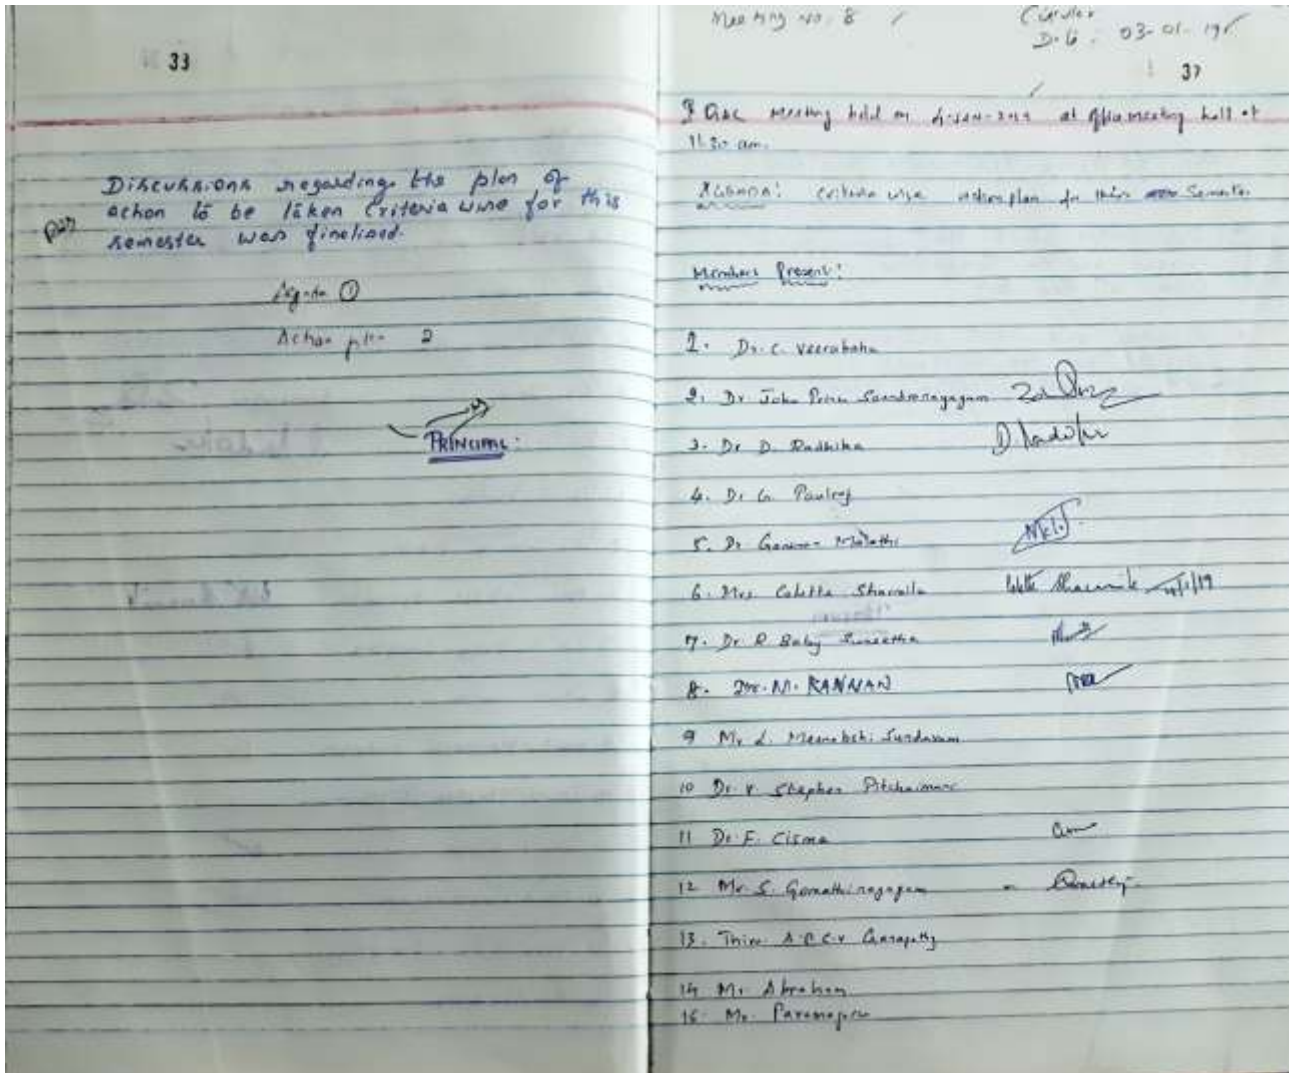 33
Discussions regarding the plan of
action to be taken Criteria wise for this
semester was finalised.
Agenda ①
Action plan 2
PRINCIPAL:
Meeting No. 8
Circular
Dt: 03-01-19
37
IQAC Meeting held on 4-JAN-2019 at meeting hall at
11.30 am.
AGENDA: Criteria wise action plan for this Semester
Members Present:
1. Dr. C. Veerabahu
2. Dr John Prem
3. Dr D. Radhika
4. Dr G. Paulraj
5. Dr Malathi
6. Mrs Coletta Sharmila 4/1/19
7. Dr R Baby Suneetha
8. Dr. M. KANNAN
9 Mr L. Meenakshi Sundaram
10 Dr. V. Stephen Pitchaimani
11 Dr F. Cisma
12 Mr. S. Gomathinayagam
13. Thiru. A.P.C.V Ganapathy
14 Mr Abraham
15. Mr. Paramaguru